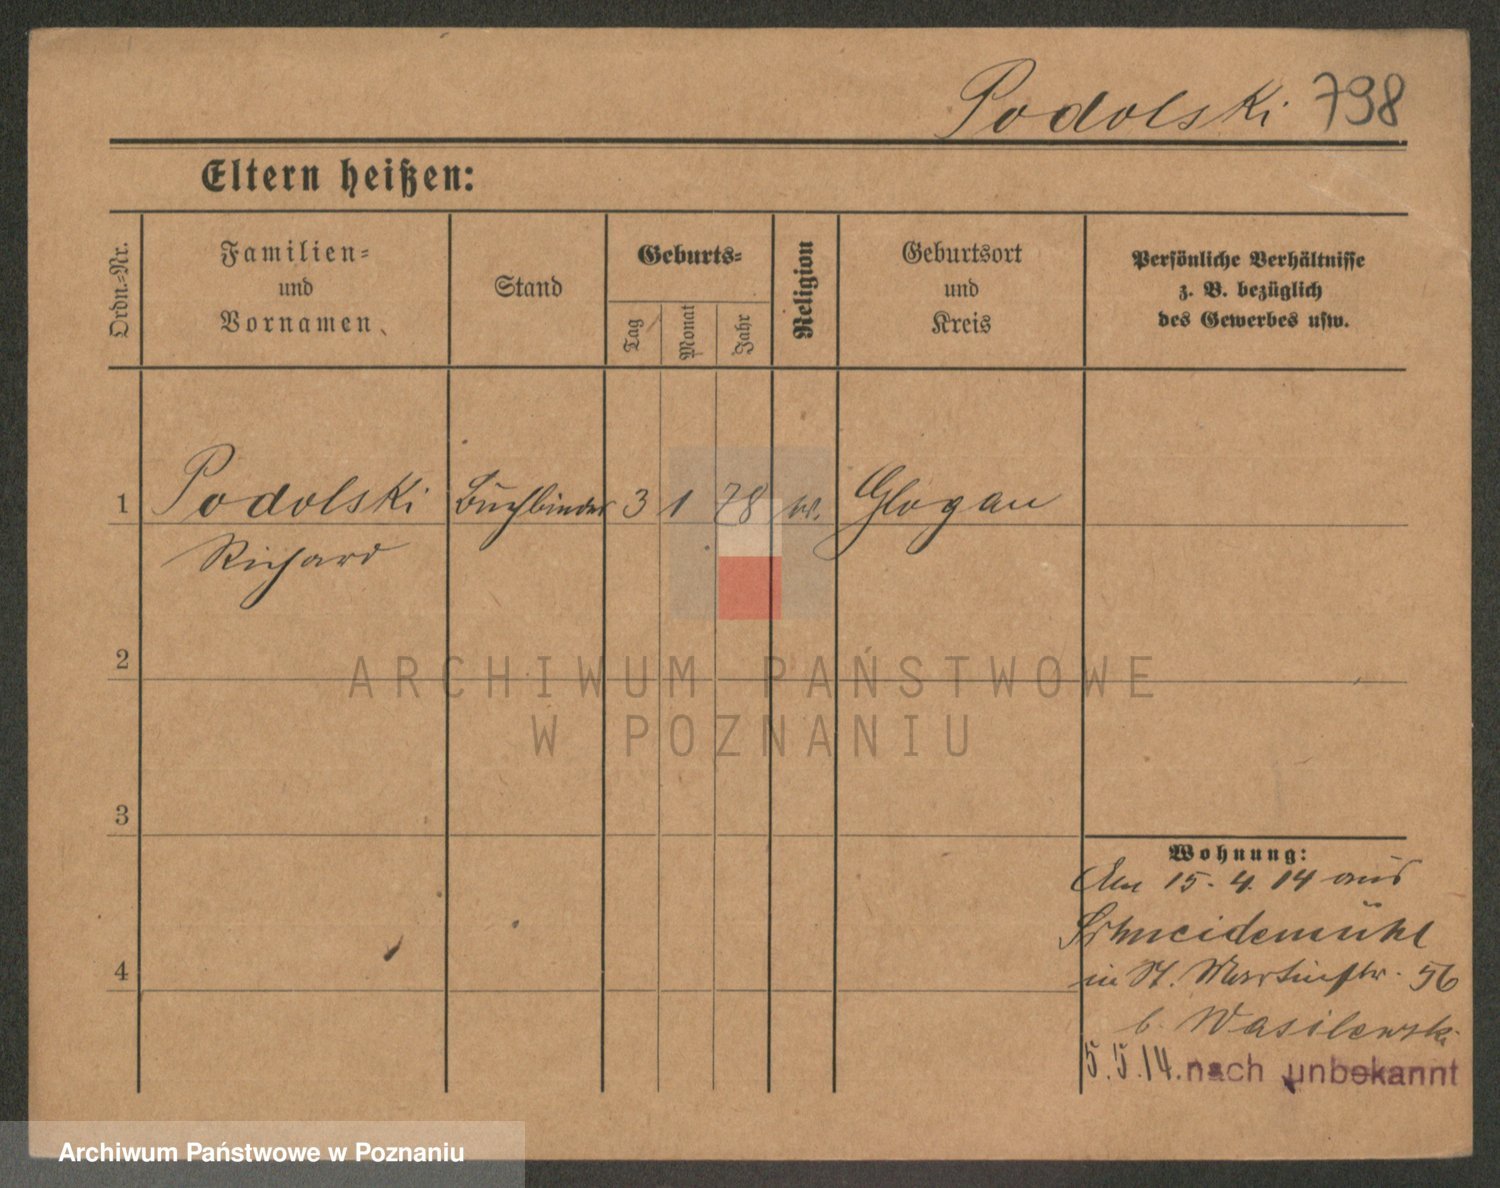 Podolski 798
Eltern heißen:
Ordn.-Nr.
Familien-
und
Vornamen
Stand
Geburts-
Tag
Monat
Jahr
Religion
Geburtsort
und
Kreis
Persönliche Verhältnisse
z. B. bezüglich
des Gewerbes usw.
1 Podolski Buchbinder 3 1 78 Glogau
Richard
2
3
4
ARCHIWUM PAŃSTWOWE
W POZNANIU
Wohnung:
15.4.14 aus
Schneidemühl
in St. Martinstr. 56
b. Wasilewski
5.5.14. nach unbekannt
Archiwum Państwowe w Poznaniu